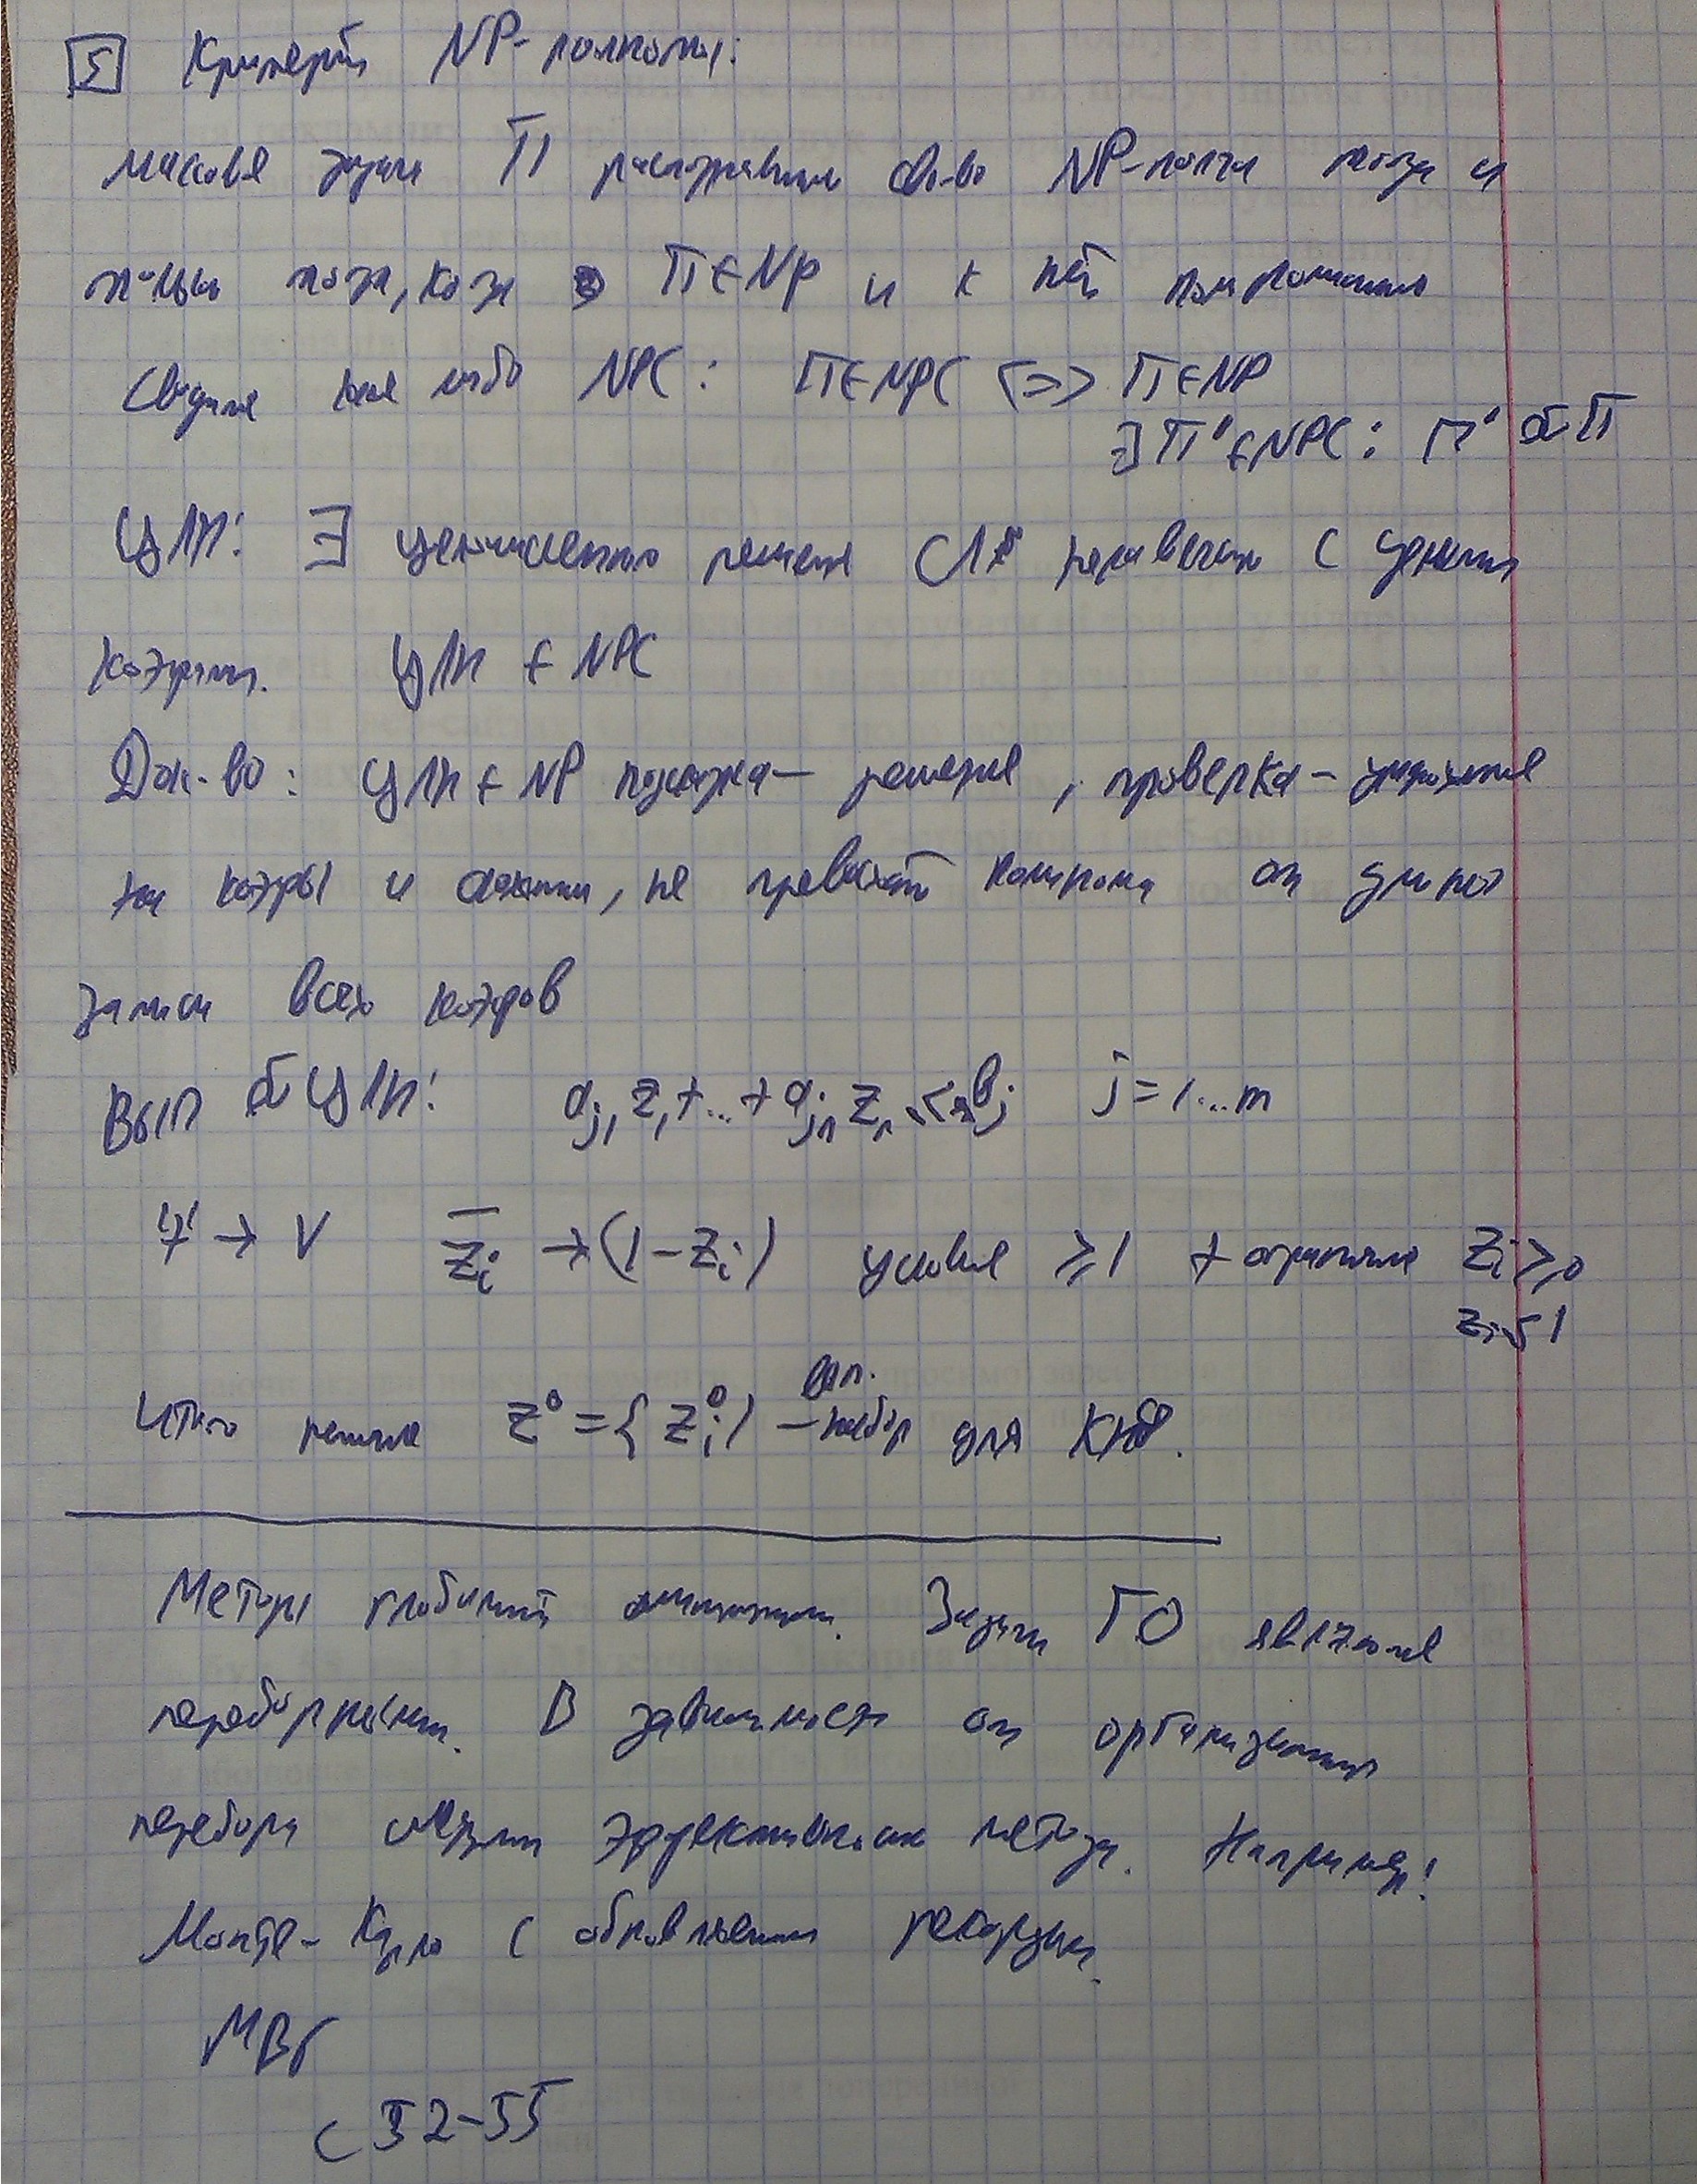 5 Критерий NP-полноты:
массовая задача П распознавания св-во NP-полна тогда и
только тогда, когда П ∈ NP и к ней полиномиально
сводима какая либо NPC: П ∈ NPC <=> П ∈ NP
∃ П' ∈ NPC: П' ∝ П
ЦЛН: ∃ целочисленно решение СЛ неравенств с целыми
коэфами. ЦЛН ∈ NPC
Док-во: ЦЛН ∈ NP подсказка – решение, проверка – умножение
на коэфы и, не превосход полинома от длины
записи всех коэфов
ВЫП ∝ ЦЛН: aj1 z1 + ... + ajn zn <= bj j = 1...m
'+' → V z̄i → (1 - zi) условие ≥ 1 + ограничения zi ≥ 0
zi ≤ 1
итого решение z⁰ = {zi⁰} – вып. набор для КНФ.
Методы глобальной оптимизации. Задачи ГО являются
переборными. В зависимости от организации
перебора эффективность метода. Например:
Монте-Карло с обновлением рекорда.
МВГ
с 52-55